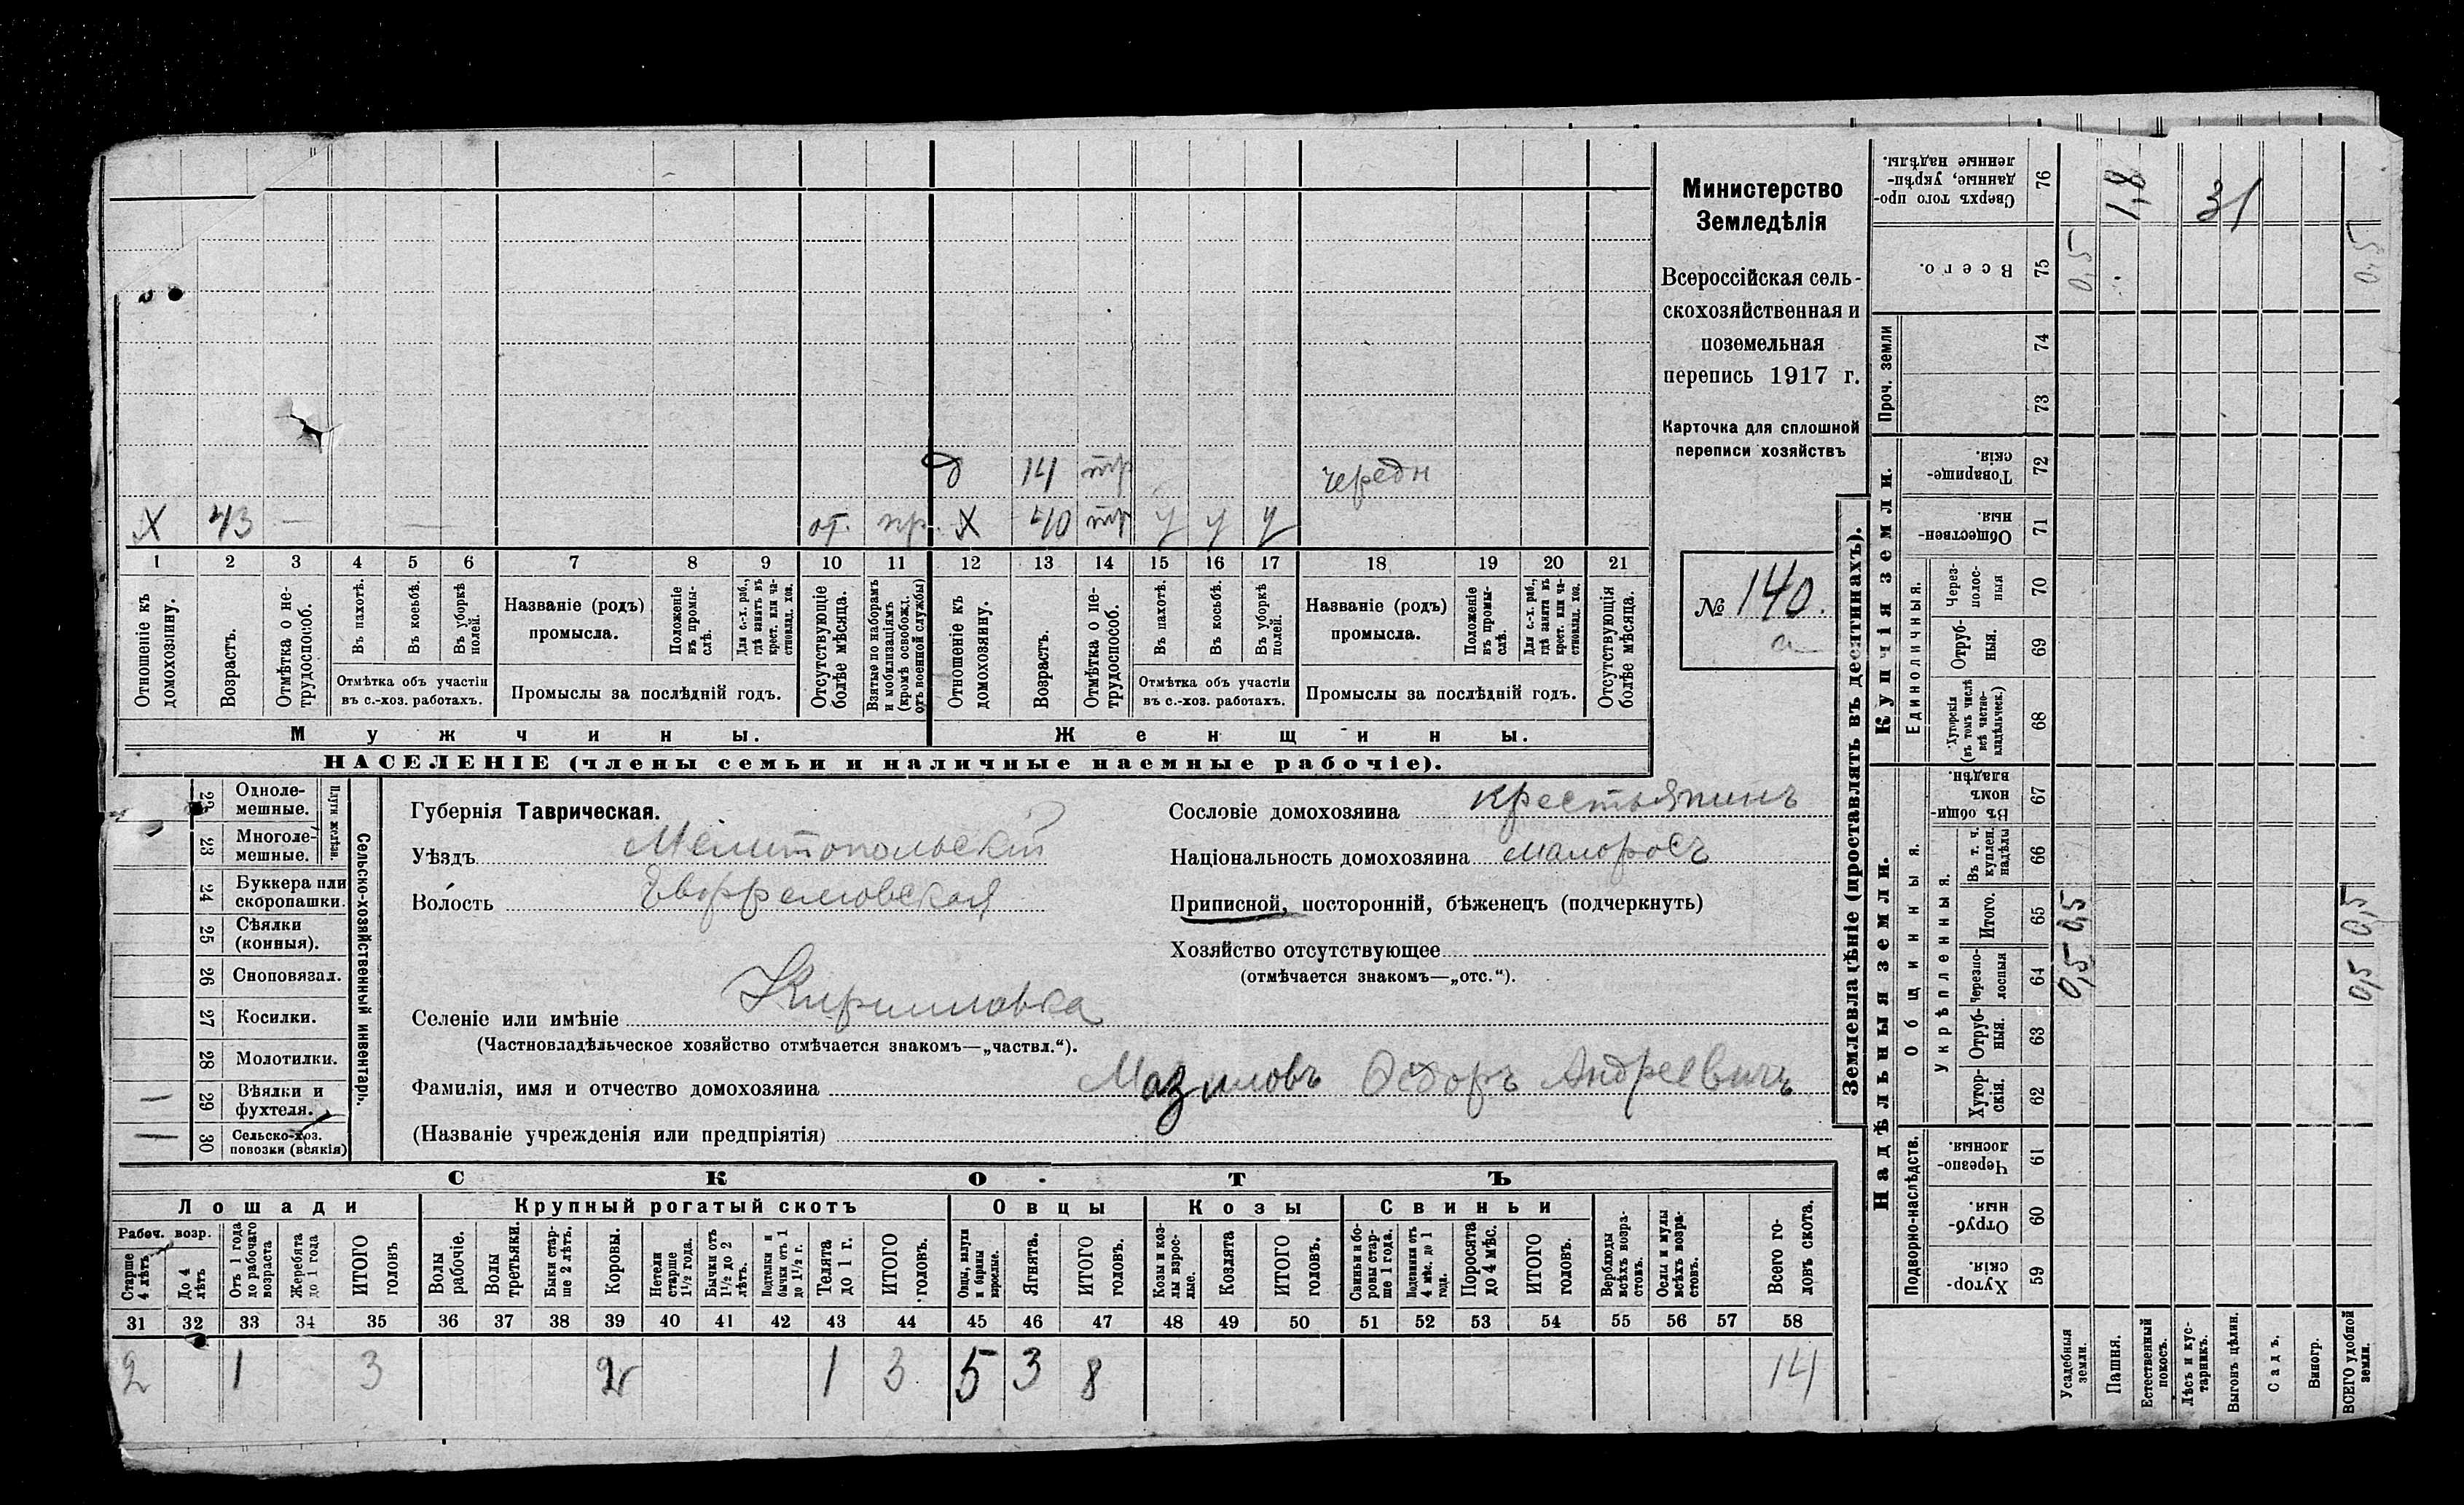 Министерство
Земледѣлія
Всероссійская сель-
скохозяйственная и
поземельная
перепись 1917 г.
Карточка для сплошной
переписи хозяйствъ
№ 140.
а
д 14 тр чередн
Х 43 — — от. пр. Х 40 тр у у у
1 2 3 4 5 6 7 8 9 10 11 12 13 14 15 16 17 18 19 20 21
Отношеніе къ домохозяину.
Возрастъ.
Отмѣтка о не-трудоспособ.
Въ пахотѣ.
Въ косьбѣ.
Въ уборкѣ полей.
Отмѣтка объ участіи
въ с.-хоз. работахъ.
Названіе (родъ)
промысла.
Положеніе въ промы-слѣ.
Для с.-х. раб., гдѣ занятъ въ крест. или ча-стновлад. хоз.
Промыслы за послѣдній годъ.
Отсутствующіе болѣе мѣсяца.
Взятые по наборамъ и мобилизаціямъ (кромѣ освобожд. отъ военной службы)
Отношеніе къ домохозяину.
Возрастъ.
Отмѣтка о не-трудоспособ.
Въ пахотѣ.
Въ косьбѣ.
Въ уборкѣ полей.
Отмѣтка объ участіи
въ с.-хоз. работахъ.
Названіе (родъ)
промысла.
Положеніе въ промы-слѣ.
Для с.-х. раб., гдѣ занята въ крест. или ча-стновлад. хоз.
Промыслы за послѣдній годъ.
Отсутствующія болѣе мѣсяца.
Мужчины. Женщины.
НАСЕЛЕНІЕ (члены семьи и наличные наемные рабочіе).
Сельско-хозяйственный инвентарь.
Плуги желѣзн.
22 Одноле-
мешные.
23 Многоле-
мешные.
24 Буккера или
скоропашки.
25 Сѣялки
(конныя).
26 Сноповязал.
27 Косилки.
28 Молотилки.
— 29 Вѣялки и
фухтеля.
— 30 Сельско-хоз.
повозки (всякія)
Губернія Таврическая.
Уѣздъ Мелитопольскій
Волость Ефремовская
Сословіе домохозяина крестьянинъ
Національность домохозяина малоросъ
Приписной, посторонній, бѣженецъ (подчеркнуть)
Хозяйство отсутствующее
(отмѣчается знакомъ—„отс.“).
Селеніе или имѣніе Кирилловка
(Частновладѣльческое хозяйство отмѣчается знакомъ—„частвл.“).
Фамилія, имя и отчество домохозяина Мазиловъ Ѳедоръ Андреевичъ
(Названіе учрежденія или предпріятія)
СКОТЪ
Лошади Крупный рогатый скотъ Овцы Козы Свиньи
Рабоч. возр.
Старше 4 лѣтъ
До 4 лѣтъ
Отъ 1 года до рабочаго возраста
Жеребята до 1 года
ИТОГО головъ
Волы рабочіе.
Волы третьяки.
Быки стар-ше 2 лѣтъ.
Коровы.
Нетели старше 1½ года.
Бычки отъ 1½ до 2 лѣтъ.
Подтелки и бычки отъ 1 до 1½ г.
Телята до 1 г.
ИТОГО головъ.
Овцы, валухи и бараны взрослые.
Ягнята.
ИТОГО головъ.
Козы и коз-лы взрос-лые.
Козлята
ИТОГО головъ.
Свиньи и бо-ровы стар-ше 1 года.
Подсвинки отъ 4 мѣс. до 1 года.
Поросята до 4 мѣс.
ИТОГО головъ.
Верблюды всѣхъ возра-стовъ.
Ослы и мулы всѣхъ возра-стовъ.
Всего го-ловъ скота.
31 32 33 34 35 36 37 38 39 40 41 42 43 44 45 46 47 48 49 50 51 52 53 54 55 56 57 58
2 1 3 2 1 3 5 3 8 14
Землевладѣніе (проставлять въ десятинахъ).
Надѣльныя земли. Купчія земли. Проч. земли
Подворно-наслѣдств. Общинныя. Единоличныя.
Укрѣпленныя.
Хутор-скія. 59
Отруб-ныя. 60
Черезпо-лосныя. 61
Хутор-скія. 62
Отруб-ныя. 63
Черезпо-лосныя 64
Итого. 65
Въ т. ч. куплен. надѣлы 66
Въ общин-номъ владѣн. 67
Хуторскія (въ томъ числѣ всѣ частно-владѣльческ.) 68
Отруб-ныя. 69
Через-полос-ныя 70
Обществен-ныя 71
Товарище-скія. 72
73
74
Всего. 75
Сверхъ того про-данные, укрѣп-ленные надѣлы. 76
Усадебныя земли. 0,5 0,5 0,5
Пашня. 1,8
Естественный покосъ.
Лѣсъ и кус-тарникъ. 31
Выгонъ цѣлин.
Садъ.
Виногр.
ВСЕГО удобной земли. 0,5 0,5 0,5